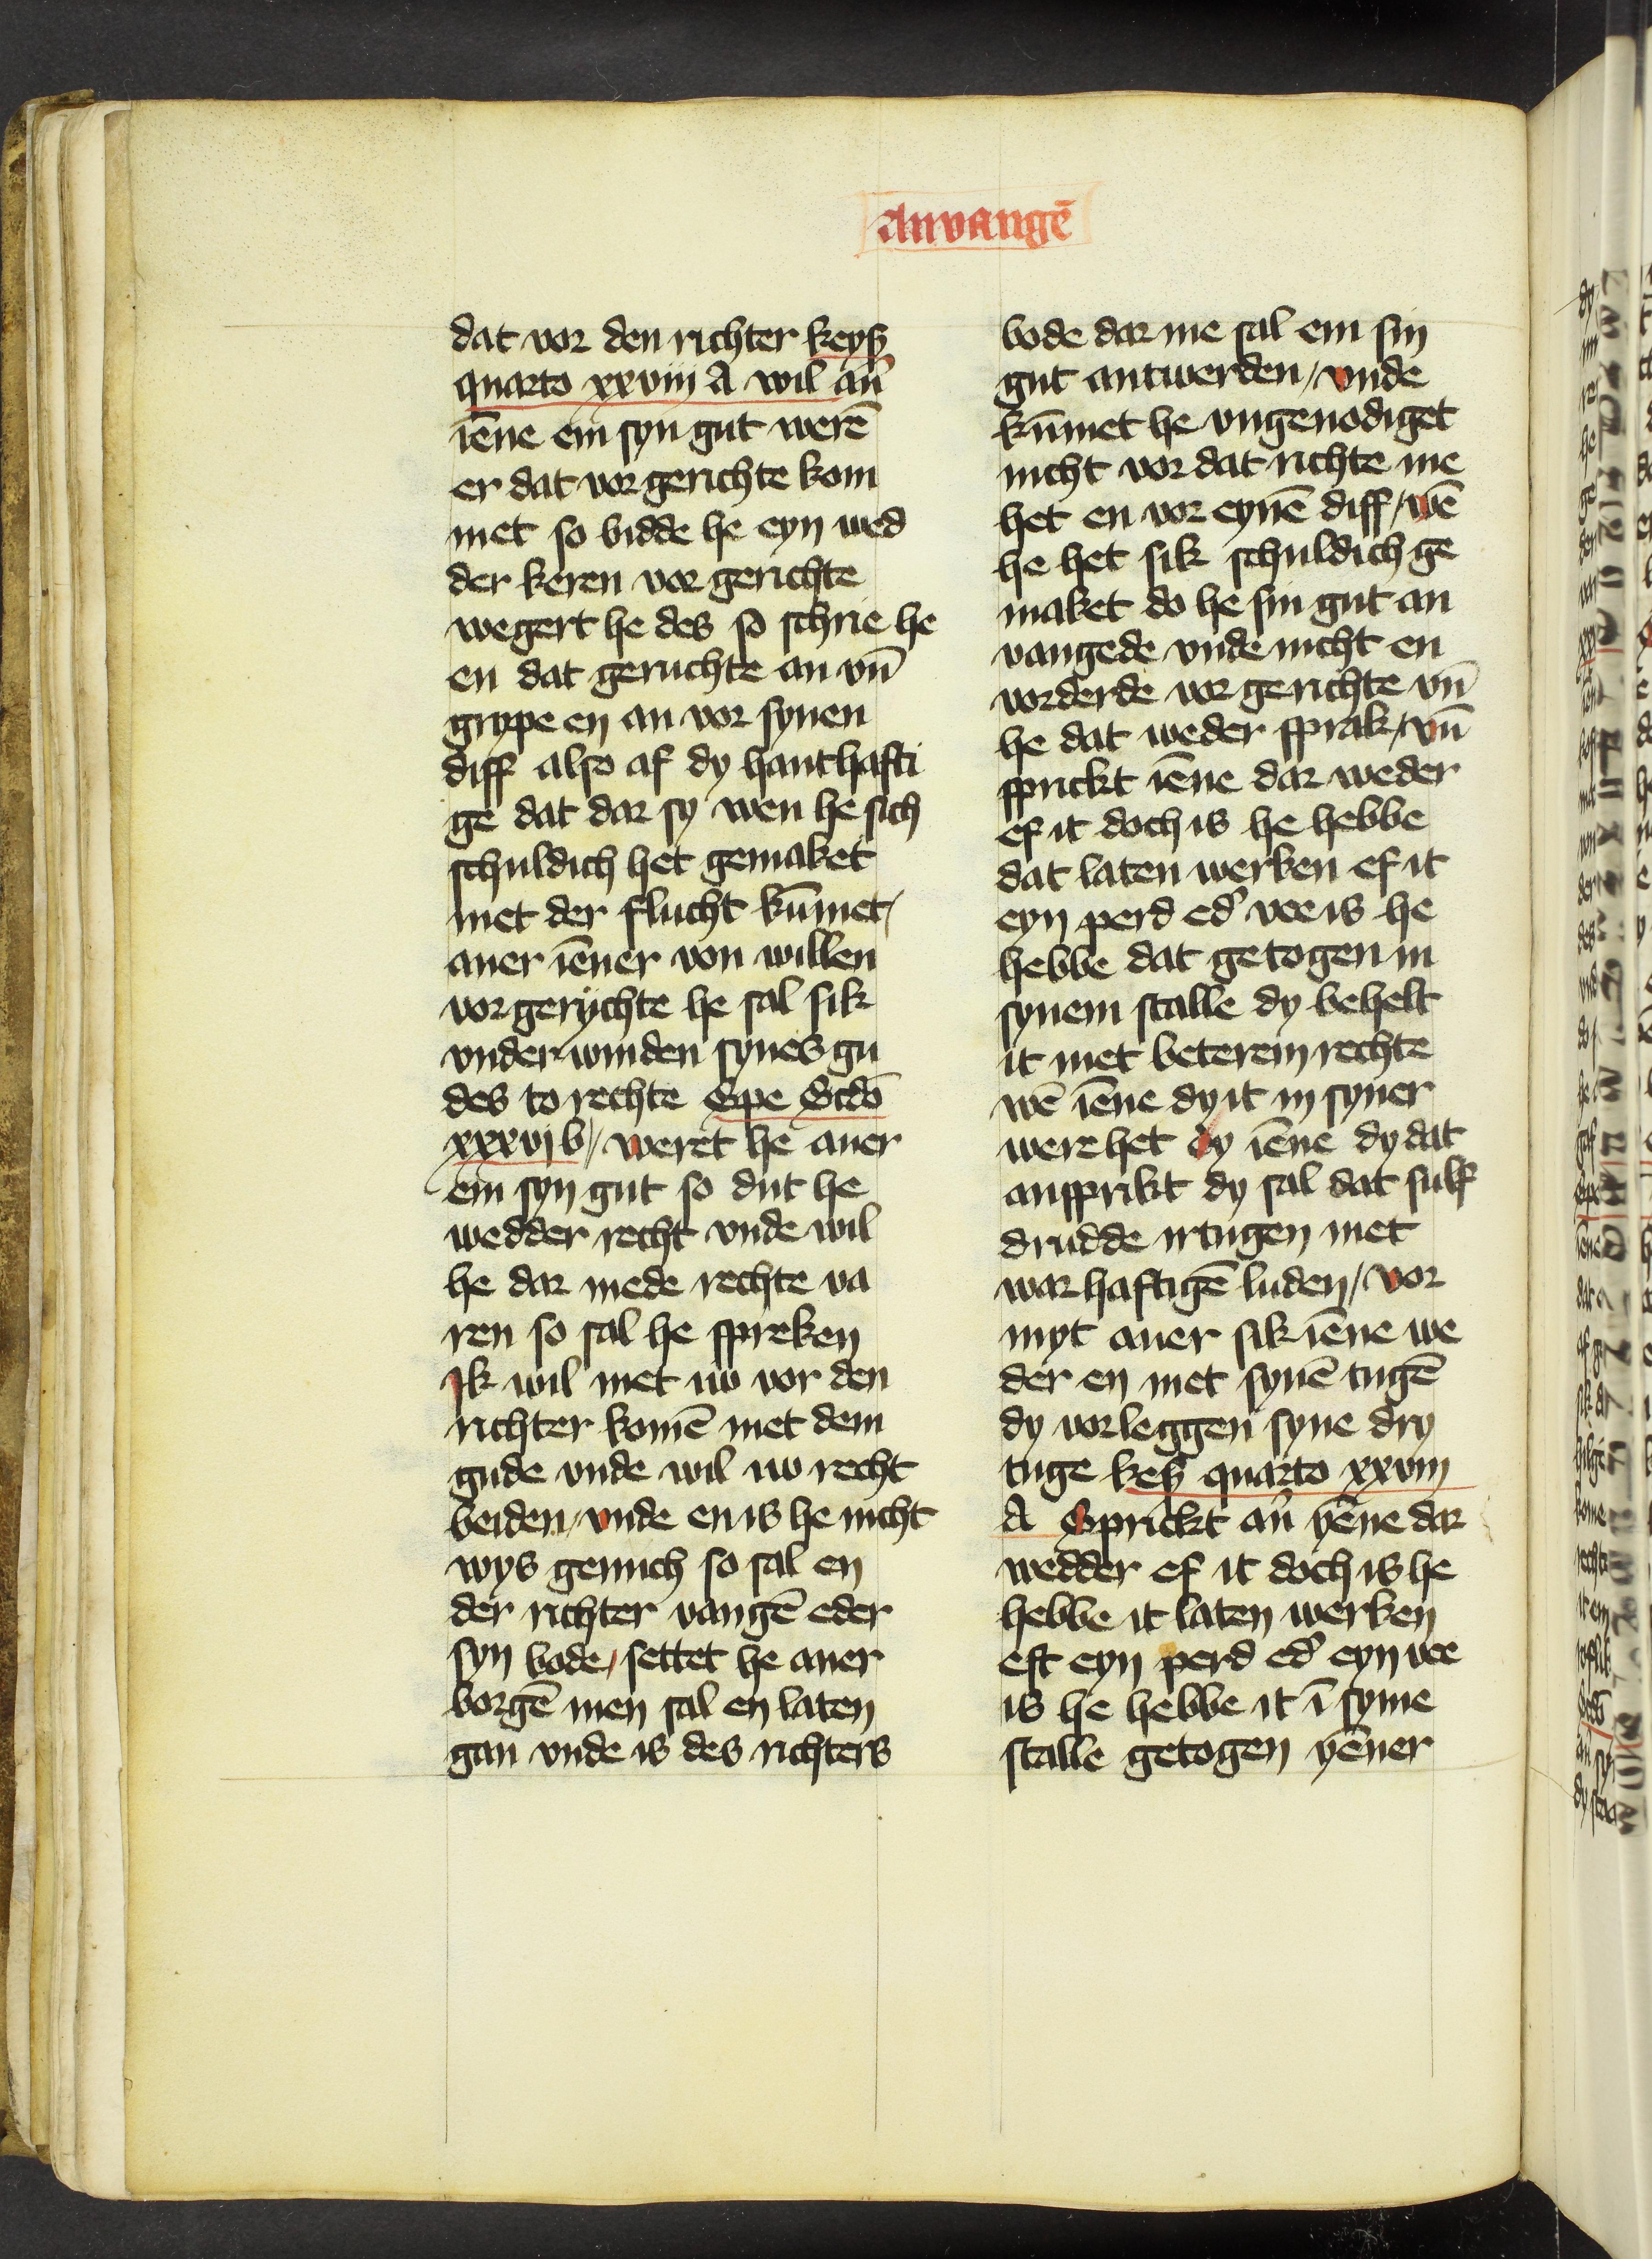 Anvangē
dat vor den richter keyß
quarto xxviii A wil au̍
iēne em syn gut werē
er dat vor gerichte kom
met so bidde he eyn wed
der keren vor gerichte
wegert he des so schrie he
en dat geruchte an vn̄
grype en an vor synen
diff also af dy hanthafti
ge dat dar sy wen he sich
schuldich het gemaket
met der flucht kūmet /
auer iēner von willen
vor gerychte he sal sik
vnderwinden synes gu
des to rechte Spe Scdō
xxxvi b / weret he auer
em syn gut so dut he
wedder recht vnde wil
he dar mede rechte va
ren so sal he spreken
Ik wil met uw vor den
richter komē met dem
gude vnde wil uw recht
beiden / vnde en is he nicht
wys genuch so sal en
der richter vangē eder
syn bode / settet he auer
borgē men sal en laten
gan vnde is des richters
bode dar me sal em sin
gut antwerden / vnde
kūmet he vngenodiget
nicht vor dat richte me
het en vor eynē diff / wē
he het sik schuldich ge
maket do he sin gut an
vangede vnde nicht en
vorderde vor gerichte vn̄
he dat weder sprak / vn̄
sprickt iēne dar weder
ef it doch is he hebbe
dat laten werken ef it
eyn perd ed̍ vee is he
hebbe dat getogen in
synem stalle dy behelt
it met beterem rechte
wē iēne dy it in syner
were het dy iēne dy dat
ansprikt dy sal dat sulf
drudde irtugen met
warhaftigē luden / vor
myt auer sik iēne we
der en met synē tugē
dy vorleggen syne dry
tuge keyß quarto xxviii
A Sprickt au̍ yēne dar
wedder ef it doch is he
hebbe it laten werken
eft eyn perd ed̍ eyn vee
is he hebbe it ī syme
stalle getogen yēner